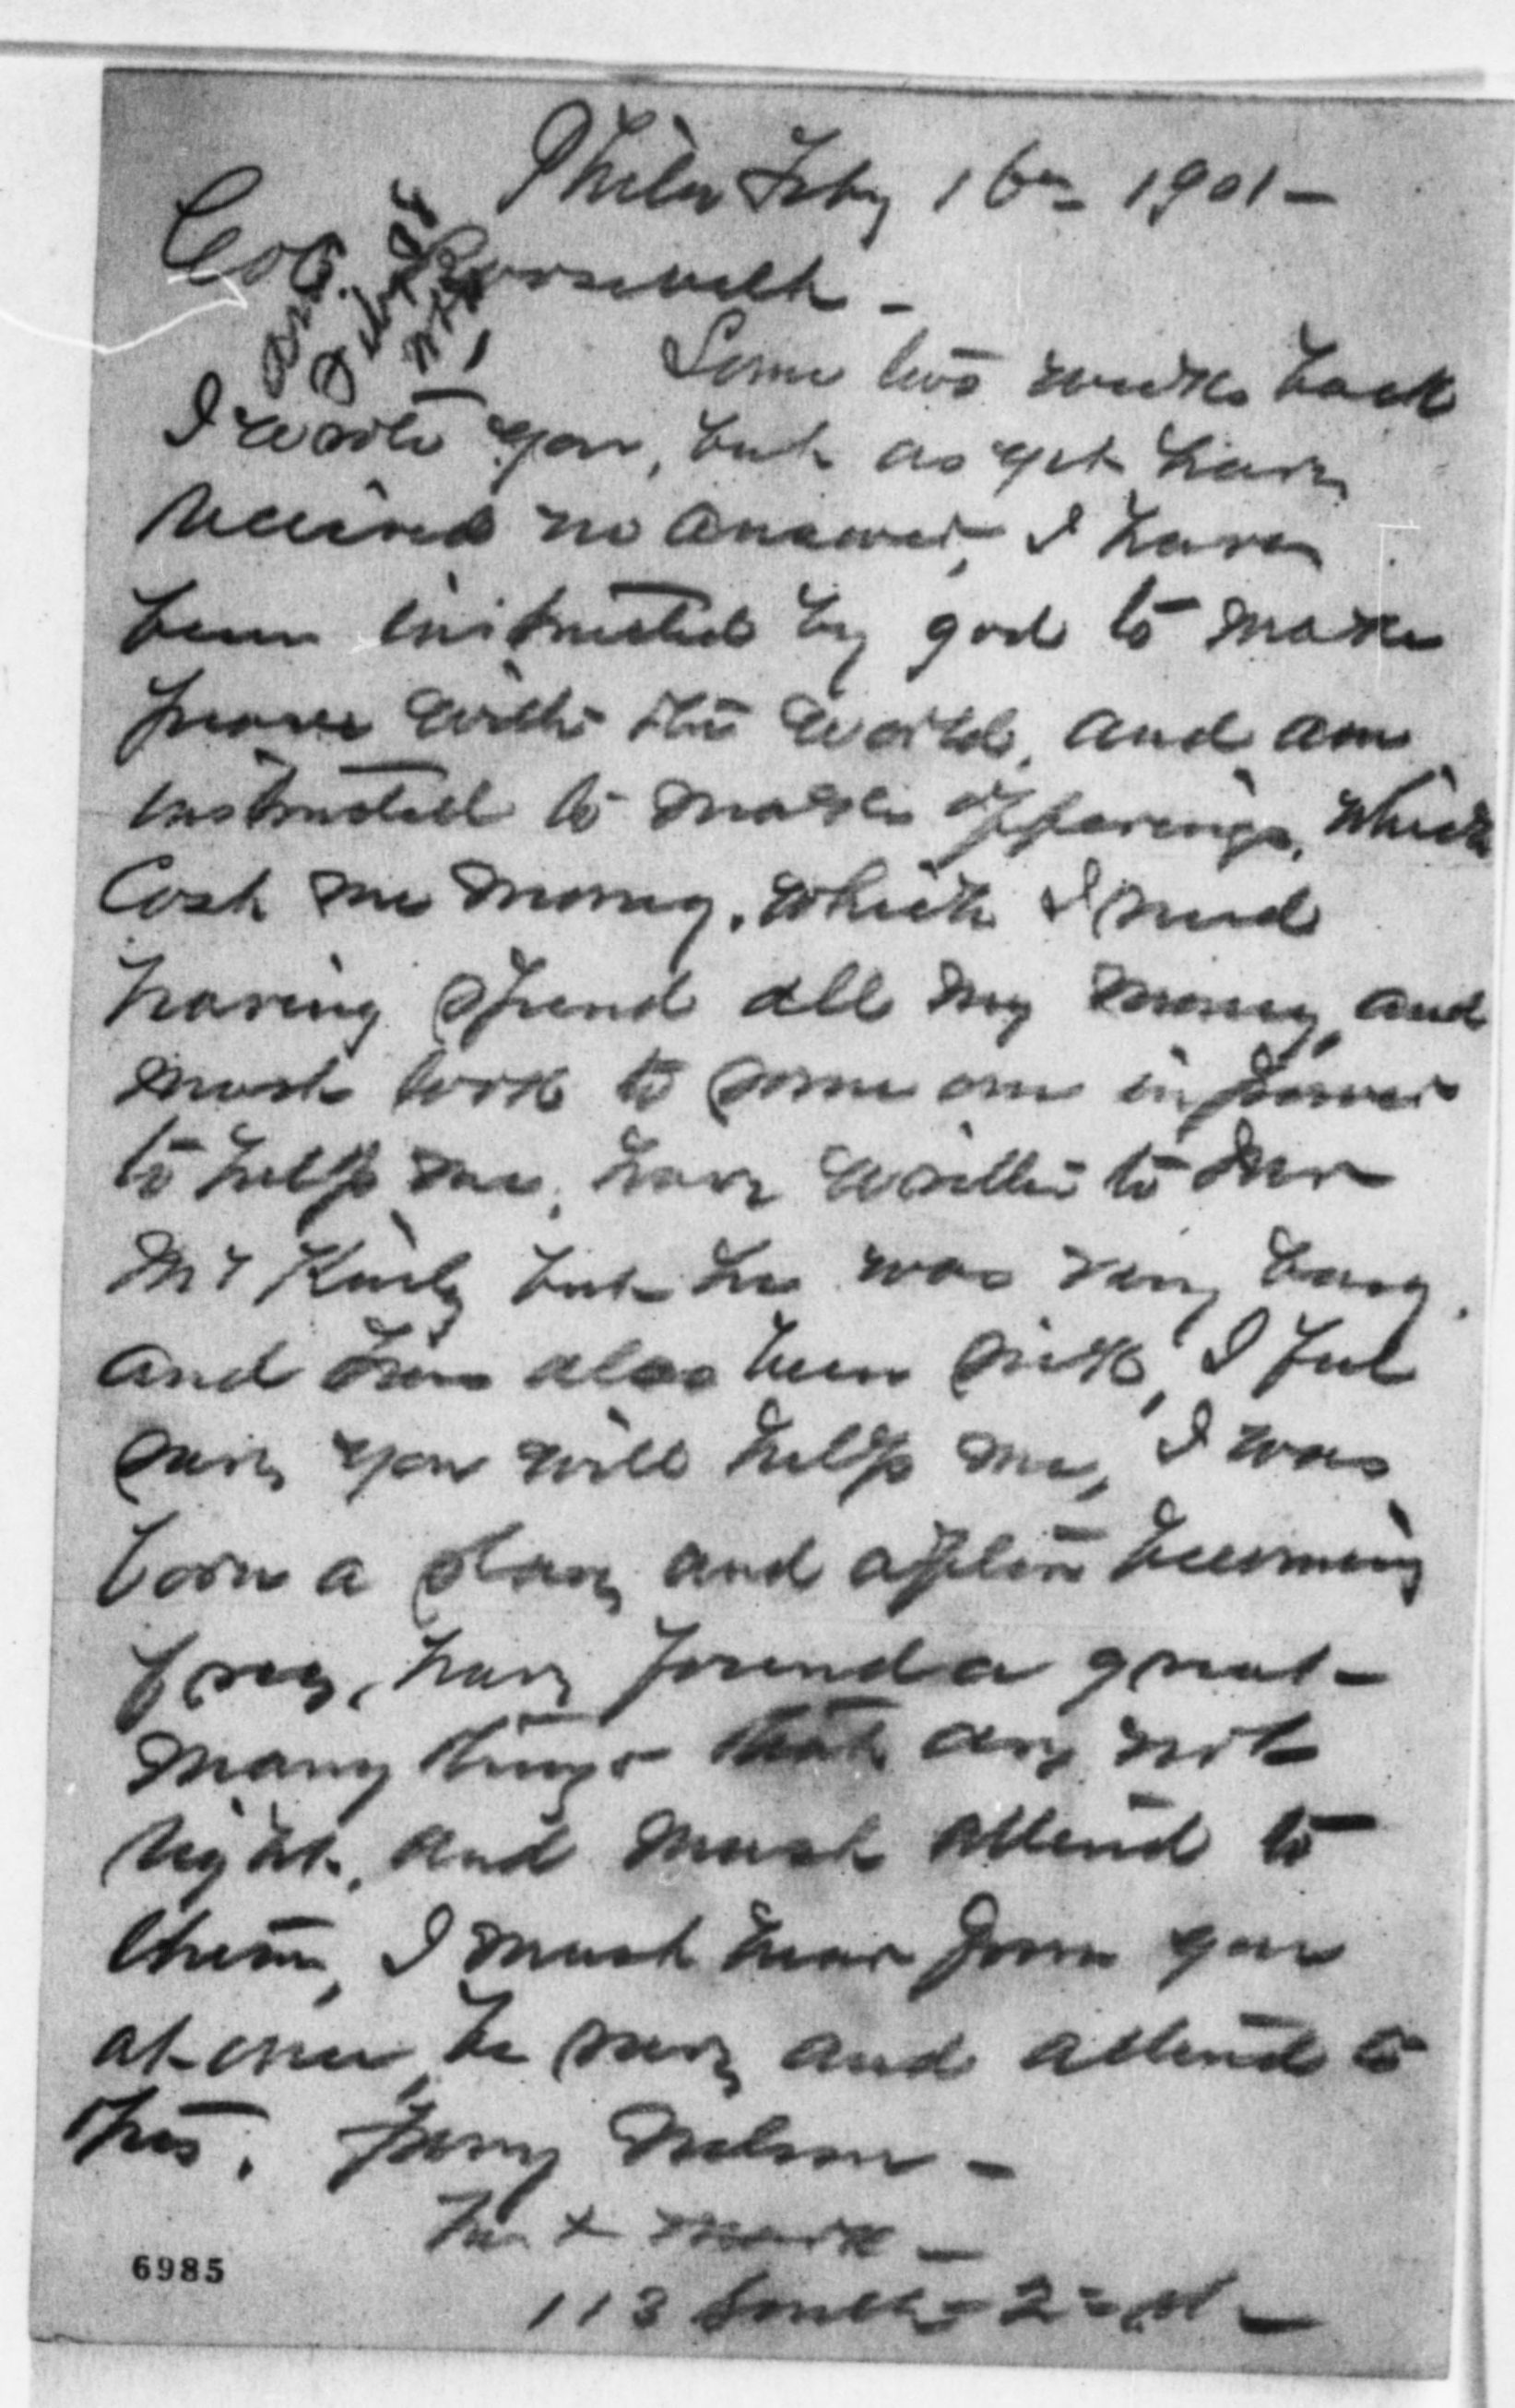 Phila Feby 16th 1901 -
Col. Roosevelt -
Some two weeks back
I wrote you, but as yet have
received no answer, I have
been instructed by god to make
peace with the world, and am
instructed to make offerings, which
Cost me money, which I need
having spend all my money, and
must look to some one in power
to help me, have written to Mr
McKinly but he was very busy,
and has also been sick, I feel
sure you will help me, I was
born a slave and after becoming
free, have found a great
many things that are not
right, and must attend to
them, I must hear from you
at once, be sure and attend to
this. Nelson -
his x mark -
113 South 2nd st -
6985